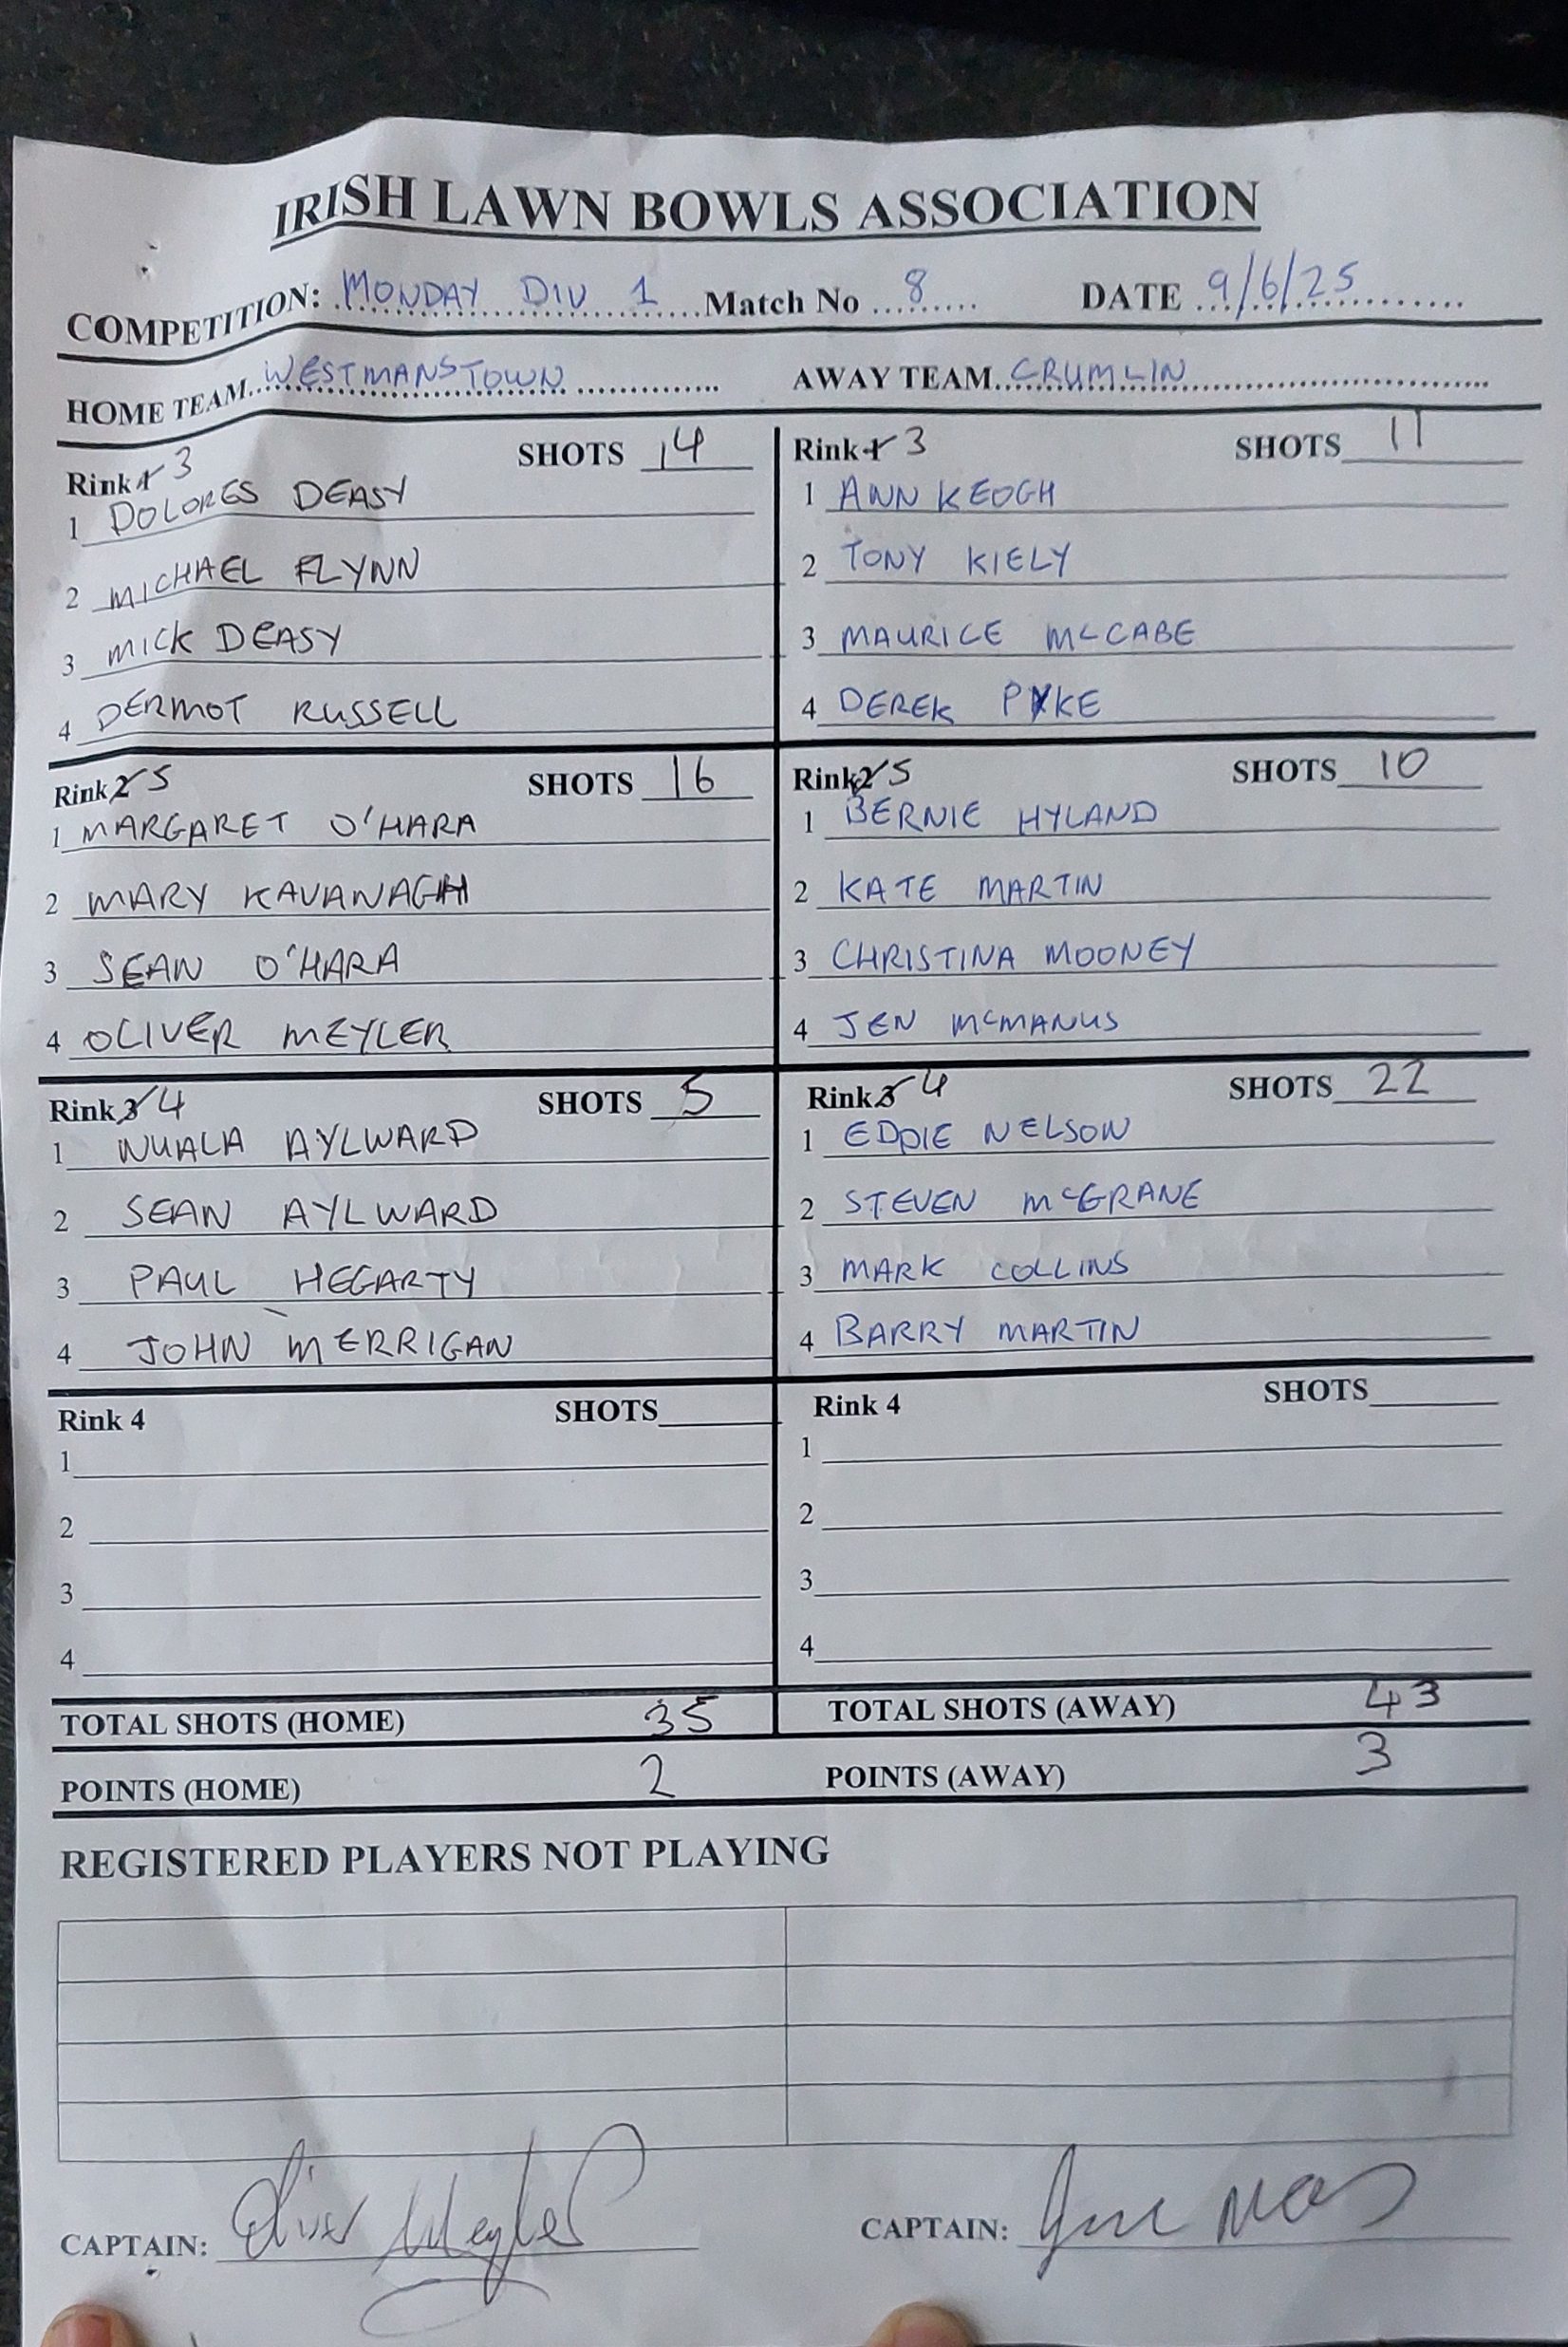 IRISH LAWN BOWLS ASSOCIATION
COMPETITION: MONDAY DIV 1 Match No 8 DATE 9/6/25
HOME TEAM WESTMANSTOWN AWAY TEAM CRUMLIN
Rink 1 3 SHOTS 14
1 DOLORES DEASY
2 MICHAEL FLYNN
3 MICK DEASY
4 DERMOT RUSSELL
Rink 1 3 SHOTS 11
1 ANN KEOGH
2 TONY KIELY
3 MAURICE McCABE
4 DEREK PYKE
Rink 2 5 SHOTS 16
1 MARGARET O'HARA
2 MARY KAVANAGH
3 SEAN O'HARA
4 OLIVER MEYLER
Rink 2 5 SHOTS 10
1 BERNIE HYLAND
2 KATE MARTIN
3 CHRISTINA MOONEY
4 JEN McMANUS
Rink 3 4 SHOTS 5
1 NUALA AYLWARD
2 SEAN AYLWARD
3 PAUL HEGARTY
4 JOHN MERRIGAN
Rink 3 4 SHOTS 22
1 EDDIE NELSON
2 STEVEN McGRANE
3 MARK COLLINS
4 BARRY MARTIN
Rink 4 SHOTS
1
2
3
4
Rink 4 SHOTS
1
2
3
4
TOTAL SHOTS (HOME) 35 TOTAL SHOTS (AWAY) 43
POINTS (HOME) 2 POINTS (AWAY) 3
REGISTERED PLAYERS NOT PLAYING
CAPTAIN: Oliver Meyler CAPTAIN: